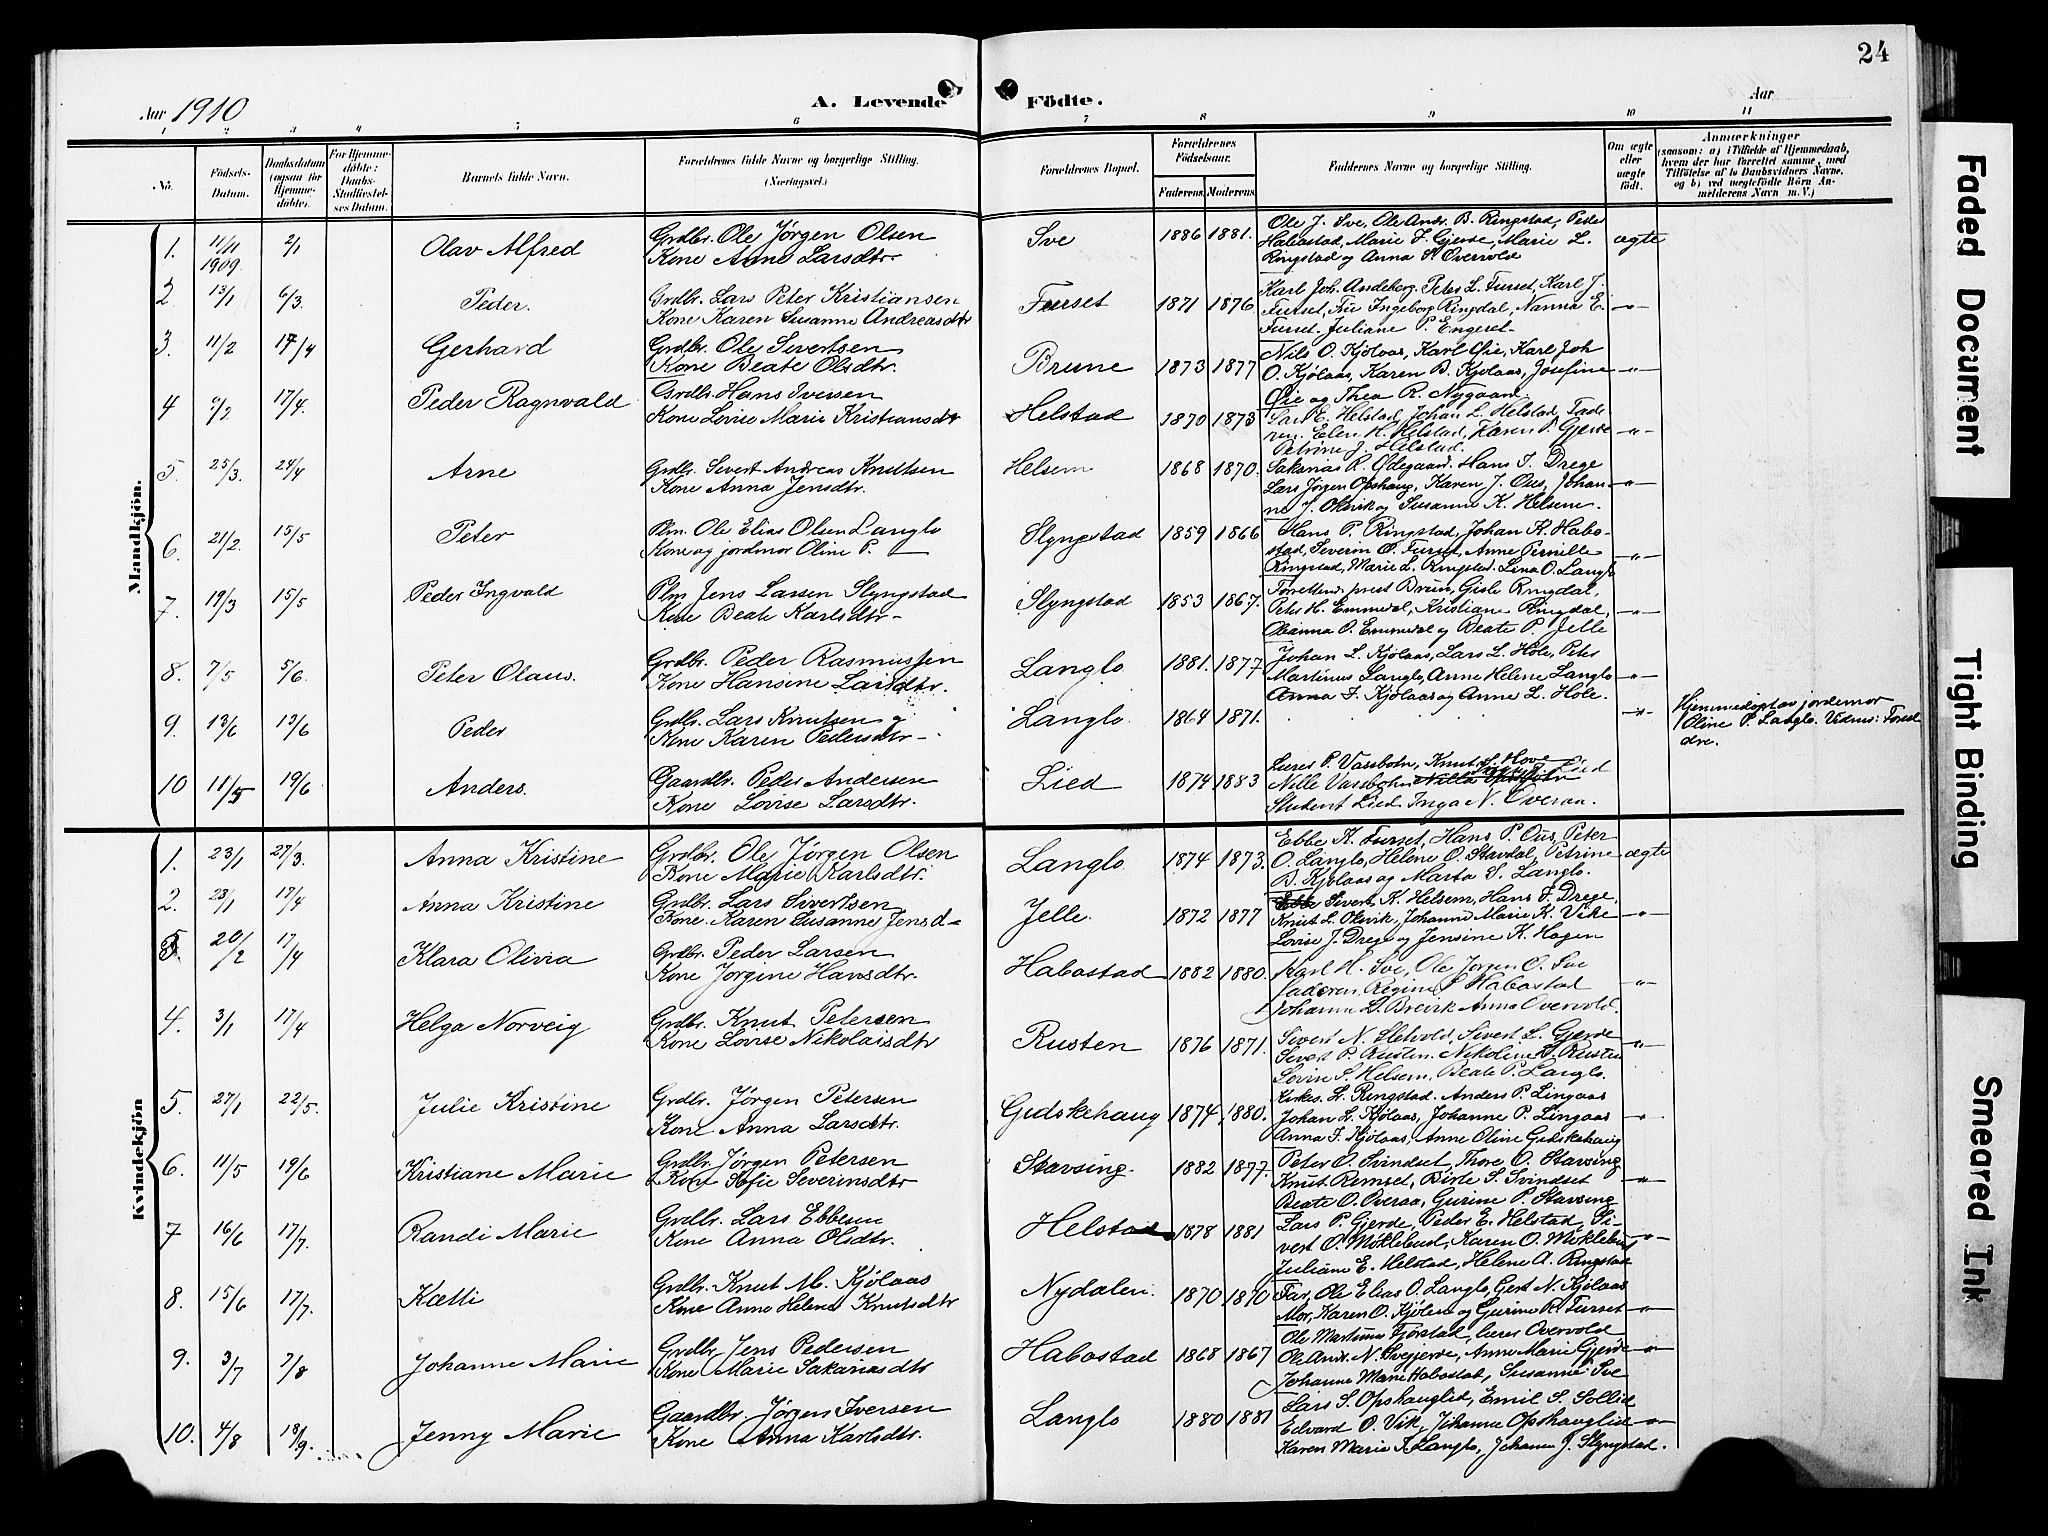 24
Aar 1910
A. Levende Födte.
Aar
1 2 3 4 5 6 7 8 9 10 11
No.
Födsels-Datum.
Daabsdatum (ogsaa for Hjemmedöbte).
For Hjemmedöbte: Daabs-Stadfæstelses Datum.
Barnets fulde Navn.
Forældrenes fulde Navne og borgerlige Stilling.
(Næringsvei.)
Forældrenes Bopæl.
Forældrenes Födselsaar.
Faderens. Moderens.
Faddernes Navne og borgerlige Stilling.
Om ægte eller uægte födt.
Anmærkninger
(saasom: a) i Tilfælde af Hjemmedaab, hvem der har forrettet samme, med Tilföielse af to Daabsvidners Navne, og b) ved uægtefödte Börn Anmelderens Navn m. V.)
Mandkjön.
1. 11/11 1909 2/1 Olav Alfred
Grdbr. Ole Jørgen Olsen
Kone Anne Larsdtr.
Sve 1886 1881.
Ole J. Sve, Ole Andr. B. Ringstad, Peder
Habostad, Marie F. Gjerde, Marie L.
Ringstad og Anna S. Overvold
ægte
2. 13/1 6/3. Peder.
Grdbr. Lars Peter Kristiansen
Kone Karen Susanne Andreasdtr
Furset 1871 1876
Karl Joh. Andeberg. Peter L. Furset, Karl J.
Furset, Fru Ingeborg Ringdal, Nanna E.
Furset. Juliane P. Engeset.
-"-
3. 11/2 17/4 Gerhard
Grdbr. Ole Sivertsen
Kone Beate Olsdtr.
Brune 1873 1877
Nils O. Kjølaas, Karl Øie, Karl Joh
O. Kjølaas, Karen B. Kjølaas, Josefine
Øie og Thea R. Nygaard.
-"-
4 /2 17/4. Peder Ragnvald
Grdbr. Hans Iversen
Kone Lovise Marie Kristiansdtr
Helstad 1870 1873
Lars E. Helstad, Johan L. Helstad, Fade-
ren. Elen H. Helstad, Karen P. Gjerde
Petrine J. Helstad.
-"-
5. 25/3. 24/4 Arne
Grdbr. Sivert Andreas Knutsen
Kone Anna Jensdtr.
Helsem 1868 1870.
Sakarias R. Ødegaard. Hans J. Drege
Lars Jørgen Opshaug, Karen J. Ous, Johan-
ne J. Okvik og Susanne K. Helsem.
-"-
6. 21/2. 15/5 Peter
Plm. Ole Elias Olsen Langlo
Kone og jordmor Oline P. —
Slyngstad 1859 1866
Hans P. Ringstad, Johan K. Habo-
stad, Severin O. Furset, Anne Pernille
Ringstad, Marie L. Ringstad. Lina O. Langlo
-"-
7. 19/3 15/5 Peder Ingvald
Plm Jens Larsen Slyngstad
Kone Beate Karlsdtr.
Slyngstad 1853 1867.
Forrettend. prest Bruun, Gisle Ringdal,
Peter H. Emmedal, Kristiane Ringdal,
Olianna O. Emmedal og Beate P. Jelle
-"-
8. 7/5 5/6. Peter Olaus.
Grdbr. Peder Rasmussen
Kone Hansine Larsdtr.
Langlo 1881. 1877
Johan L. Kjølaas, Lars L. Hole, Peter
Martinus Langlo, Anne Helene Langlo
Anna F. Kjølaas og Anne L. Hole.
-"-
9 13/6 13/6 Peder
Grdbr. Lars Knutsen og
Kone Karen Pedersdtr
Langlo 1864 1871.
-"-
Hjemmedøpt av jordemor
Oline P. Langlo. Vidner: Foreld
dre.
10 11/5 19/6 Anders.
Gaardbr. Peder Andersen
Kone Lovise Larsdtr.
Lied 1874 1883
Lieres P. Vassbotn, Knut S. Hov
Nille Vassbotn
Student Lied Inga N. Overaa.
Kvindekjön
1. 23/1 27/3. Anna Kristine
Grdbr. Ole Jørgen Olsen
Kone Marie Karlsdtr.
Langlo 1874 1873.
Ebbe K. Furset, Hans P. Ous, Peter
O. Langlo, Helene O. Stavdal, Petrine
B. Kjølaas og Marta S. Langlo.
ægte
2. 23/1 17/4 Anna Kristine
Grdbr. Lars Sivertsen
Kone. Karen Susanne Jensd-
Jelle. 1872 1877
Sivert K. Helsem, Hans F. Drege,
Knut L. Okvik, Johanne Marie K. Vike
Lovise J. Drege og Jensine K. Hagen
-"-
3 20/2 17/4 Klara Olivia
Grdbr. Peder Larsen
Kone Jørgine Hansdtr.
Habostad 1882 1880.
Karl H. Sve, Ole Jørgen O. Sve
faderen, Regine P Habostad
Johanne L. Breivik Anna Overvold.
-"-
4. 3/1 17/4 Helga Norveig
Grdbr. Knut Petersen
Kone Lovise Nikolaisdtr
Rusten 1876 1871.
Sivert N. Sletvold, Sivert L. Gjerde
Sivert P. Rusten. Nikoline L. Rusten
Lovise S. Helsem, Beate P. Langlo.
-"-
5. 27/1 22/5. Julie Kristine
Grdbr. Jørgen Petersen
Kone Anna Larsdtr.
Gidskehaug 1874 1880.
Kirkes. L. Ringstad. Anders P. Lingaas
Johan L. Kjølaas, Johanne P. Lingaas
Anna F. Kjølaas, Anne Oline Gidskehaug
-"-
6. 11/5 19/6 Kristiane Marie
Grdbr. Jørgen Petersen
Kone Sofie Severinsdtr
Stavseng. 1882 1877.
Peter O. Svindset, Thore O. Stavseng
Knut Remset, Birte S. Svindset
Beate O. Overaa, Gurine P. Stavseng
-"-
7 16/6 17/7. Randi Marie
Grdbr. Lars Ebbesen
Kone Anna Olsdtr.
Helstad 1878 1881
Lars P. Gjerde, Peder E. Helstad, Si-
vert O. Møklebust, Karen O. Møklebust
Juliane E. Helstad, Helene A. Ringstad
-"-
8. 15/6 17/7. Kætti
Grdbr. Knut M. Kjølaas
Kone Anna Helene Knutsdtr
Nydalen. 1870 1870
Far, Ole Elias O. Langlo, Gert N. Kjølaas
Mor, Karen O. Kjølaas og Gurine K. Furset
-"-
9. 3/7 7/8 Johanne Marie
Grdbr Jens Pedersen
Kone Marie Sakariasdtr
Habostad 1868 1867
Ole Martinus Fjørstad, Lieres Overvold
Ole Andr. N. Svegjerde, Anne Marie Gjerde
Johanne Marie Habostad, Susanne Sve
-"-
10. 4/8 18/9. Jenny Marie
Gaardbr. Jørgen Iversen
Kone Anna Karlsdtr.
Langlo 1880 1881
Lars S. Opshauglid, Emil S. Sollid
Edvard O. Vik, Johanne Opshauglid
Karen Marie I. Langlo, Johanne J. Slyngstad.
-"-
Faded Document
Tight Binding
Smeared Ink